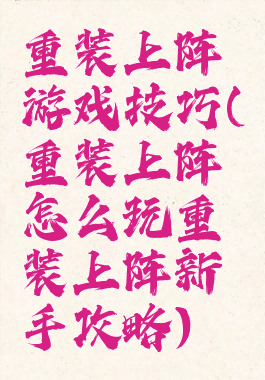 重装上阵
游戏技巧(
重装上阵
怎么玩重
装上阵新
手攻略)